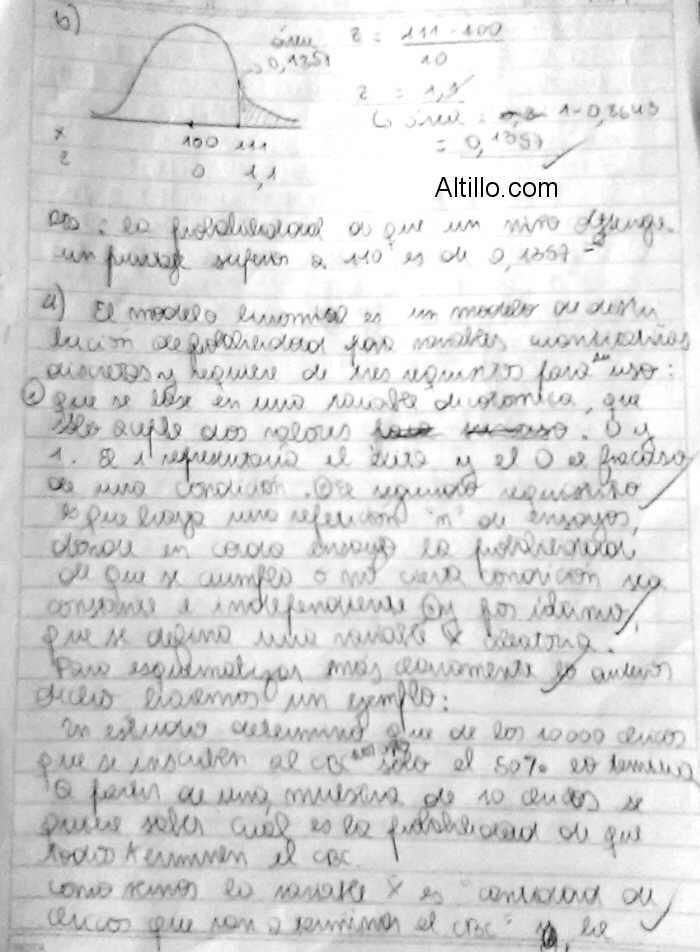 b)
área
0,1251
z = 111 - 100
10
z = 1,1
área = 1-0,8643
= 0,1357
x 100 111
z 0 1,1
Altillo.com
Rta: la probabilidad de que un niño
un puntaje superior a 110 es de 0,1357
a) El modelo binomial es un modelo de distri
bución de probabilidad para variables cuantitativas
discretas y requiere de tres requisitos para su uso:
que se base en una variable dicotómica, que
sólo dos valores 0 y
1. El 1 representaría el éxito y el 0 el fracaso
de una condición. El segundo requisito
es que haya una repetición "n" de ensayos,
donde en cada ensayo la probabilidad
de que se cumpla o no cierta condición sea
constante e independiente y por último,
que se defina una variable x aleatoria.
Para esquematizar más claramente lo anterior
haremos un ejemplo:
Un estudio determinó que de los 10000 chicos
que se inscriben al CBC sólo el 50% lo termina
A partir de una muestra de 10 chicos se
quiere saber cuál es la probabilidad de que
todos terminen el CBC.
Como vemos la variable x es "cantidad de
chicos que van a terminar el CBC"